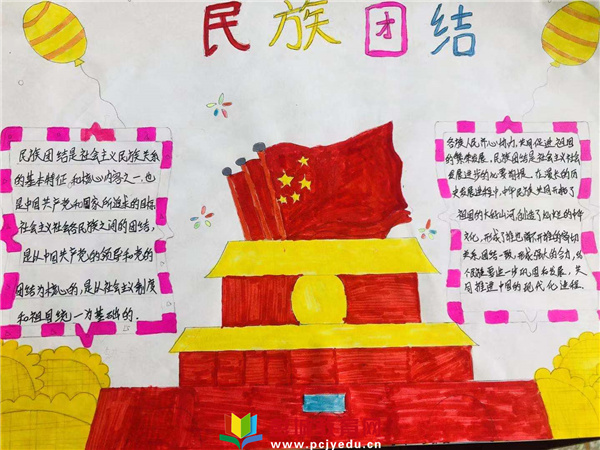 民族团结
民族团结是社会主义民族关系
的基本特征和核心内容之一.也
是中国共产党和国家所追求的目标
社会主义社会各民族之间的团结,
是以中国共产党的领导和党的
团结为核心的,是以社会主义制度
和祖国统一为基础的.
各族人民齐心协力,共同促进祖国
的繁荣发展,民族团结是社会主义社会
发展进步的必要前提。在漫长的历
史发展进程中,中华民族共同开拓了
祖国的大好山河,创造了灿烂的中华
文化,形成了谁也离不开谁的密切
关系.团结一致,形成强大的合力,
发展,共
同推进中国的现代化进程.
www.pcjyedu.cn